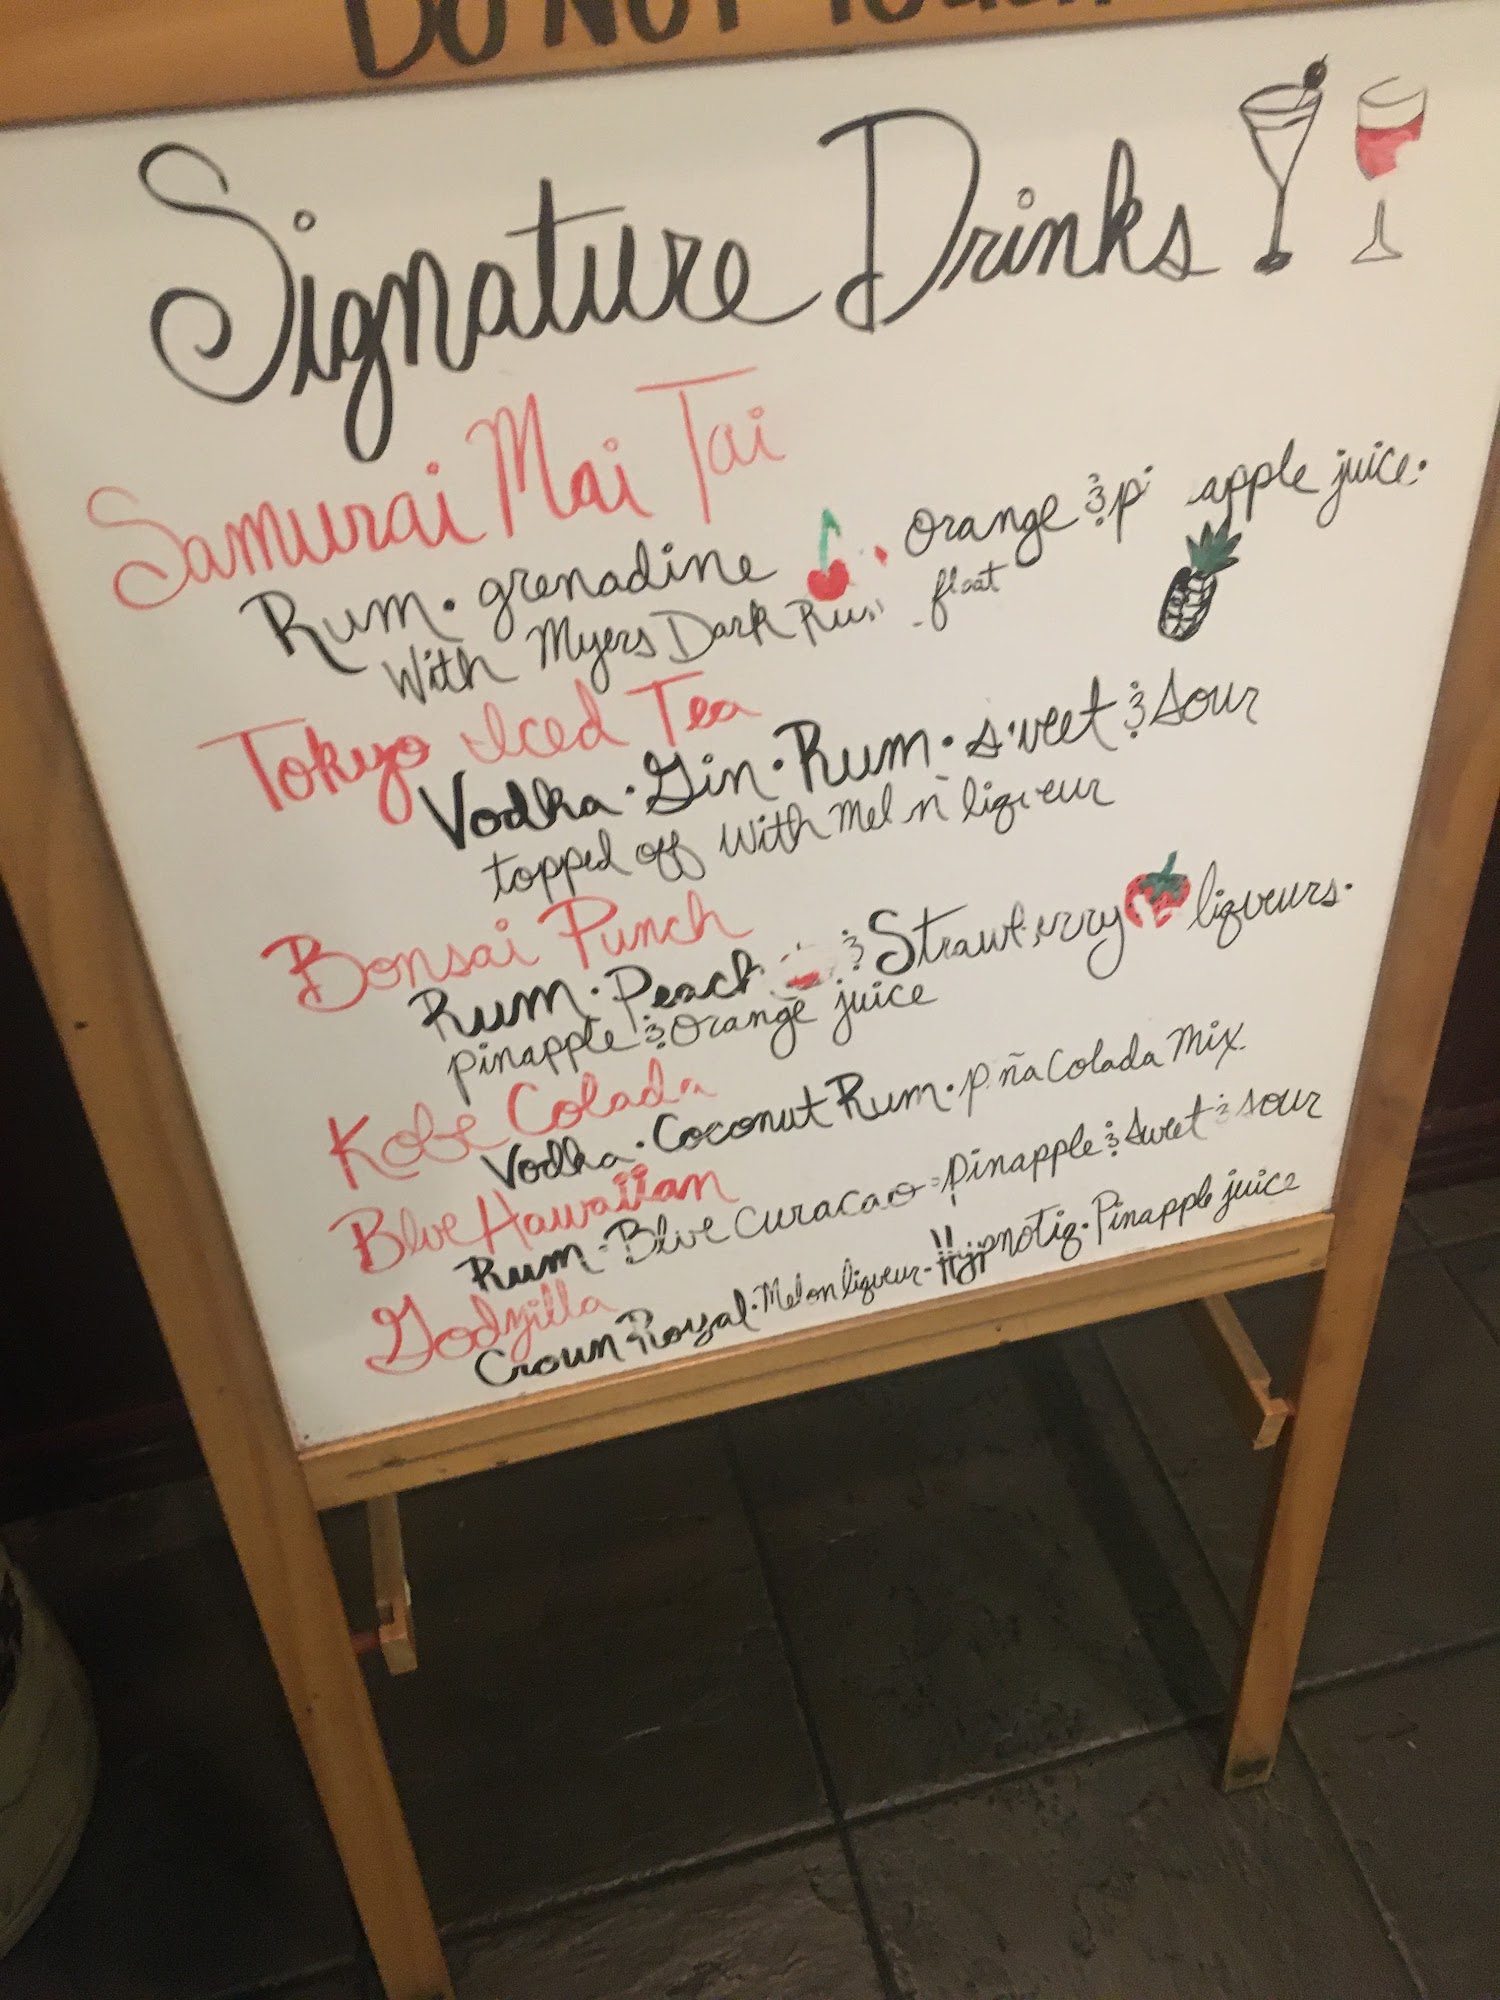 DO NOT TOUCH
Signature Drinks
Samurai Mai Tai
Rum · grenadine · orange & p apple juice.
With Myers Dark Rum float
Tokyo Iced Tea
Vodka · Gin · Rum · sweet & sour
topped off with Mel n liqueur
Bonsai Punch
Rum · Peach & Strawberry liqueurs.
pineapple & orange juice
Kobe Colada
Vodka · Coconut Rum · p ña Colada Mix.
Blue Hawaiian
Rum · Blue Curacao · pineapple & sweet & sour
Godzilla
Crown Royal · Melon liqueur - Hypnotiq · Pineapple juice